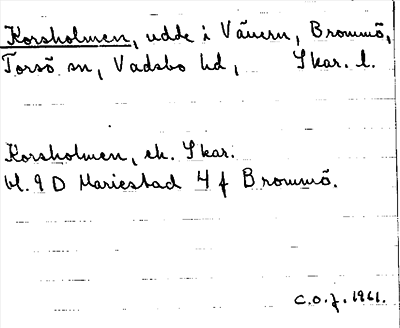 Korsholmen, udde i Vänern, Brommö,
Torsö sn, Vadsbo hd, Skar. l.
Korsholmen, ek. Skar.
bl. 9 D Mariestad 4 f Brommö.
C.O.J. 1961.